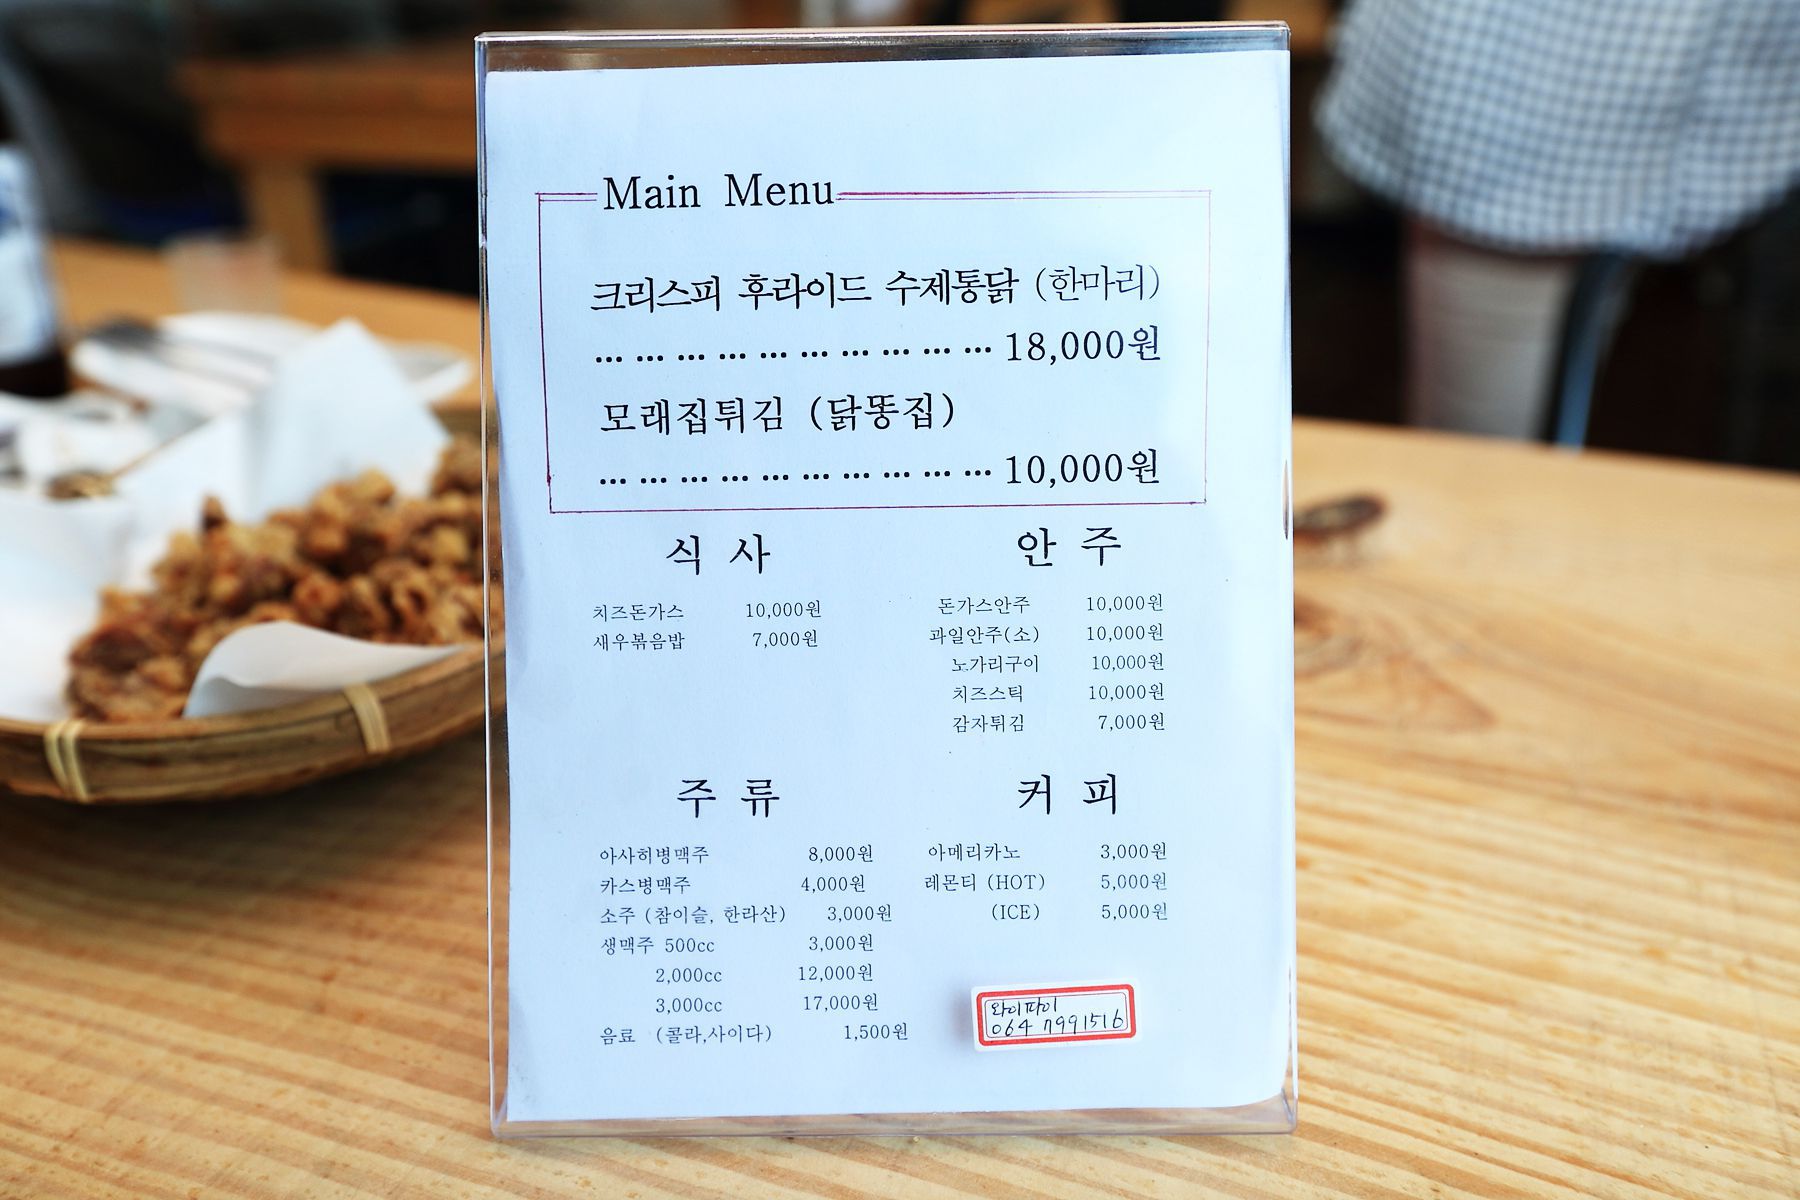 Main Menu
크리스피 후라이드 수제통닭 (한마리)
… … … … … … … … … … 18,000원
모래집튀김 (닭똥집)
… … … … … … … … … … 10,000원
식 사
치즈돈가스 10,000원
새우볶음밥 7,000원
안 주
돈가스안주 10,000원
과일안주(소) 10,000원
노가리구이 10,000원
치즈스틱 10,000원
감자튀김 7,000원
주 류
아사히병맥주 8,000원
카스병맥주 4,000원
소주 (참이슬, 한라산) 3,000원
생맥주 500cc 3,000원
2,000cc 12,000원
3,000cc 17,000원
음료 (콜라,사이다) 1,500원
커 피
아메리카노 3,000원
레몬티 (HOT) 5,000원
(ICE) 5,000원
와이파이
064 7991516